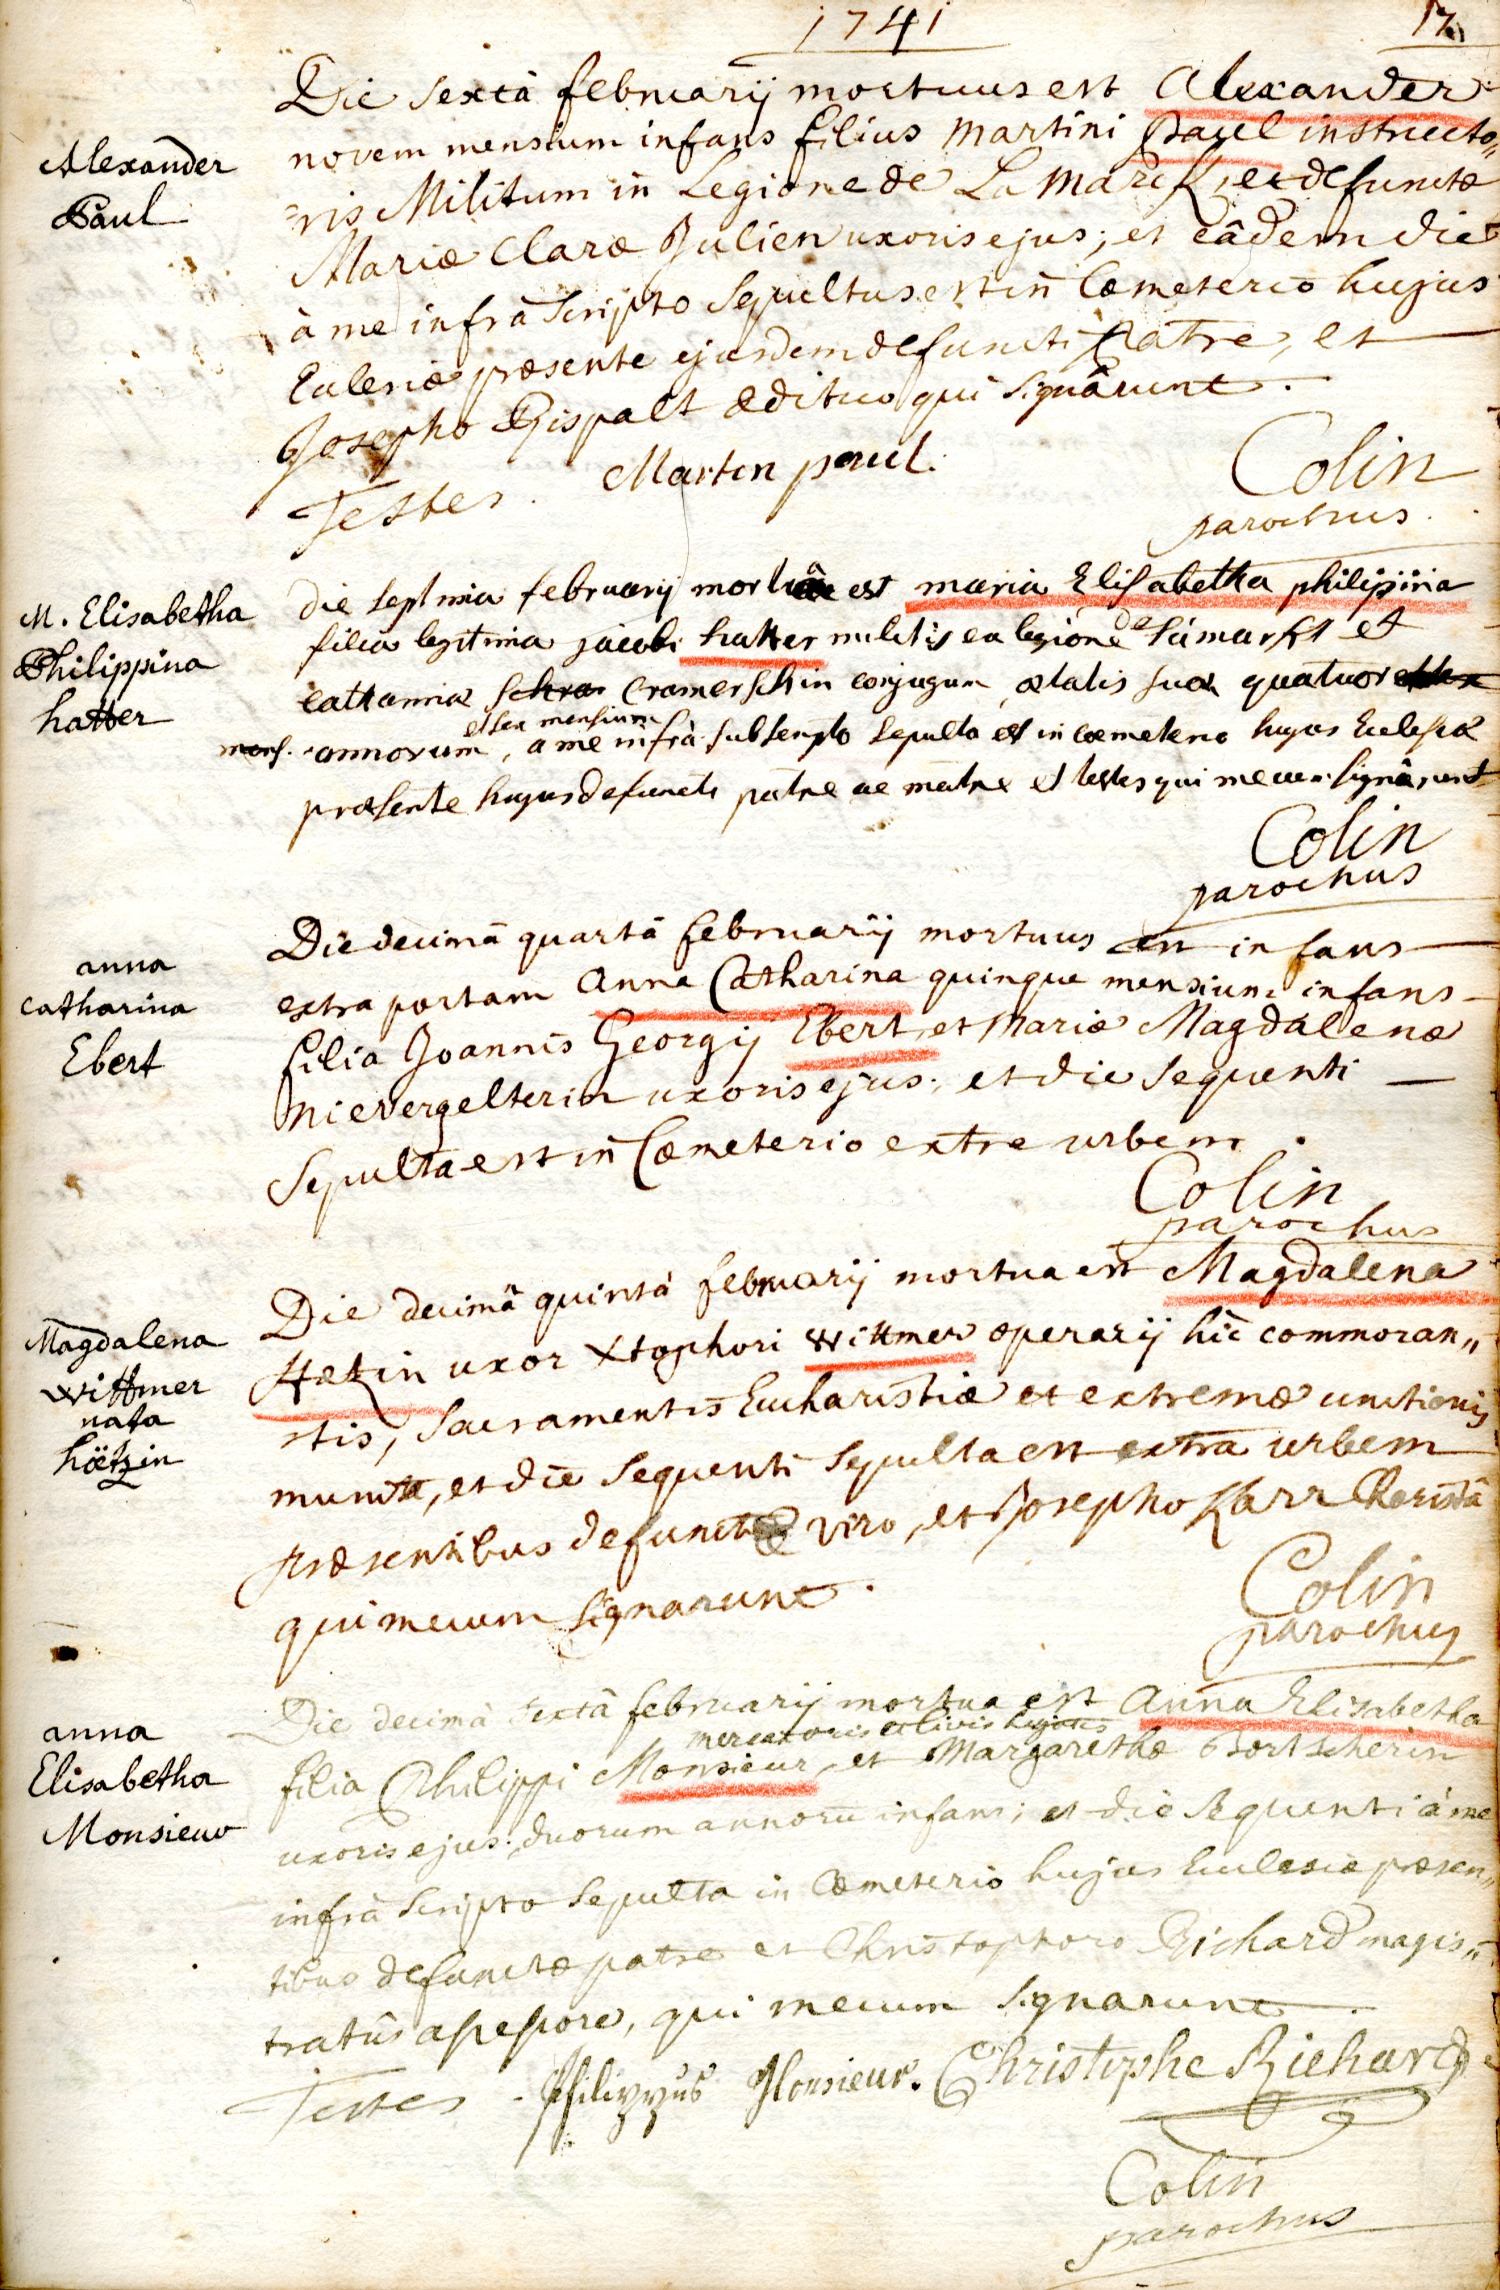 1741
17
Die sextâ februarij mortuus est Alexander
novem mensium infans filius Martini Paul instructo„
Alexander
Paul
ris Militum in Legione de La Marck, et defunctæ
Mariæ Claræ Julien uxoris ejus; et eâdem die
à me infrà scripto sepultus est in Cœmeterio hujus
Eclesiæ præsente ejusdem defuncti patre, et
Josepho Rispalt ædituo qui signârunt.
Testes. Martin paul.
Colin
parochus.
M. Elisabetha
Philippina
hatter
die septima februarij mortua est maria Elisabetha philippina
filia legitima jacobi hatter militis ex legione de lamarkt et
catharinæ Cramerschin conjugum, ætatis suæ quatuor
et sex mensium
mens. annorum, a me infrà subscripto sepulta est in cœmeterio hujus Eclesiæ
præsente hujus defunctæ patre ac matre et testes qui mecum signârunt
Colin
parochus
anna
catharina
Ebert
Die decimâ quartâ februarij mortuus est infans
extra portam Anna Catharina quinque mensium infans
filia Joannis Georgij Ebert, et Mariæ Magdalenæ
Nievergelterin uxoris ejus; et die sequenti
Sepulta est in Cœmeterio extra urbem.
Colin
parochus
Magdalena
wittmer
nata
hötzin
Die decimâ quintâ februarij mortua est Magdalena
Hætzin uxor Xtophori wittmer operarij hîc commoran„
tis, Sacramentis Eucharistiæ et extremæ unctionis
munita, et die sequenti sepulta est extra urbem
præsentibus defunctæ viro, et Josepho Karr Choristâ
qui mecum signarunt.
Colin
parochus
anna
Elisabetha
Monsieur
Die decimâ sextâ februarij mortua est Anna Elisabetha
mercatoris et civis hujatis
filia Philippi Monsieur, et Margarethæ Bortscherin
uxoris ejus; duorum annorū infans; et die sequenti à me
infrà scripto sepulta in Cœmeterio hujus Eclesiæ præsen„
tibus defunctæ patre et Christophoro Richard magis„
tratûs assessore, qui mecum signarunt.
Testes. Philippus Monsieur. Christophe Richard
Colin
parochus